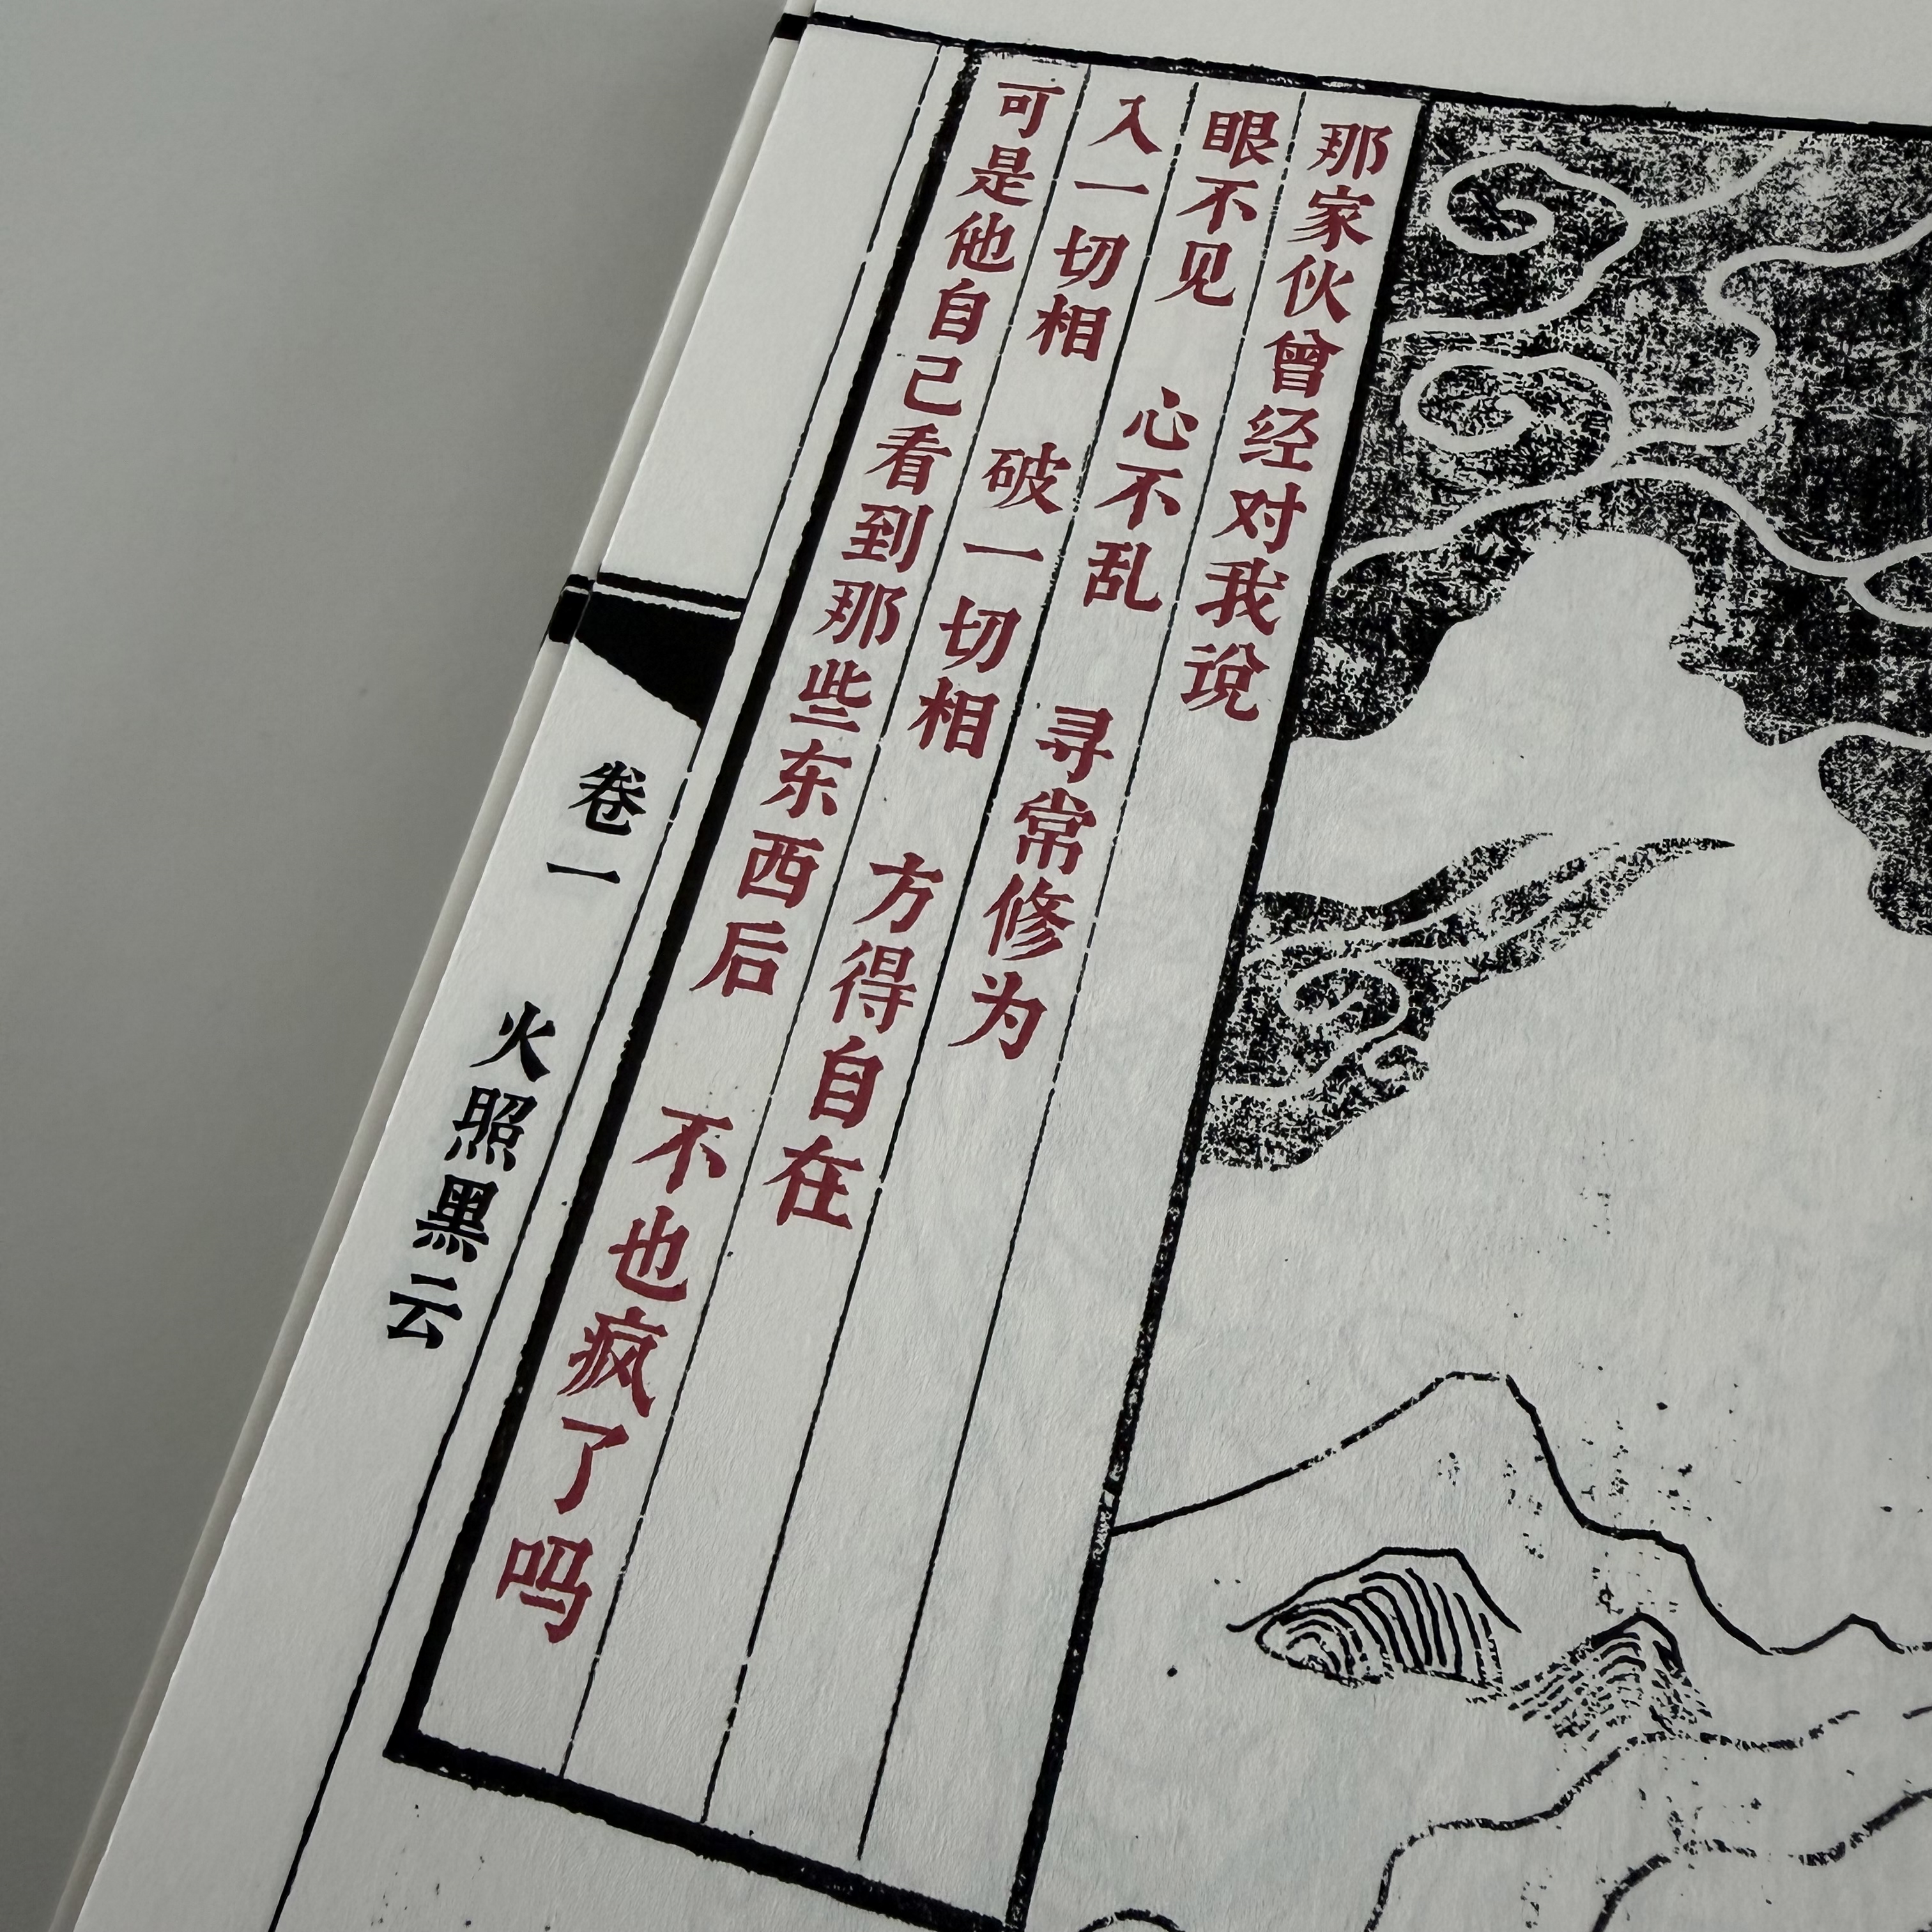 那家伙曾经对我说
眼不见 心不乱 寻常修为
入一切相 破一切相 方得自在
可是他自己看到那些东西后 不也疯了吗
卷一 火照黑云